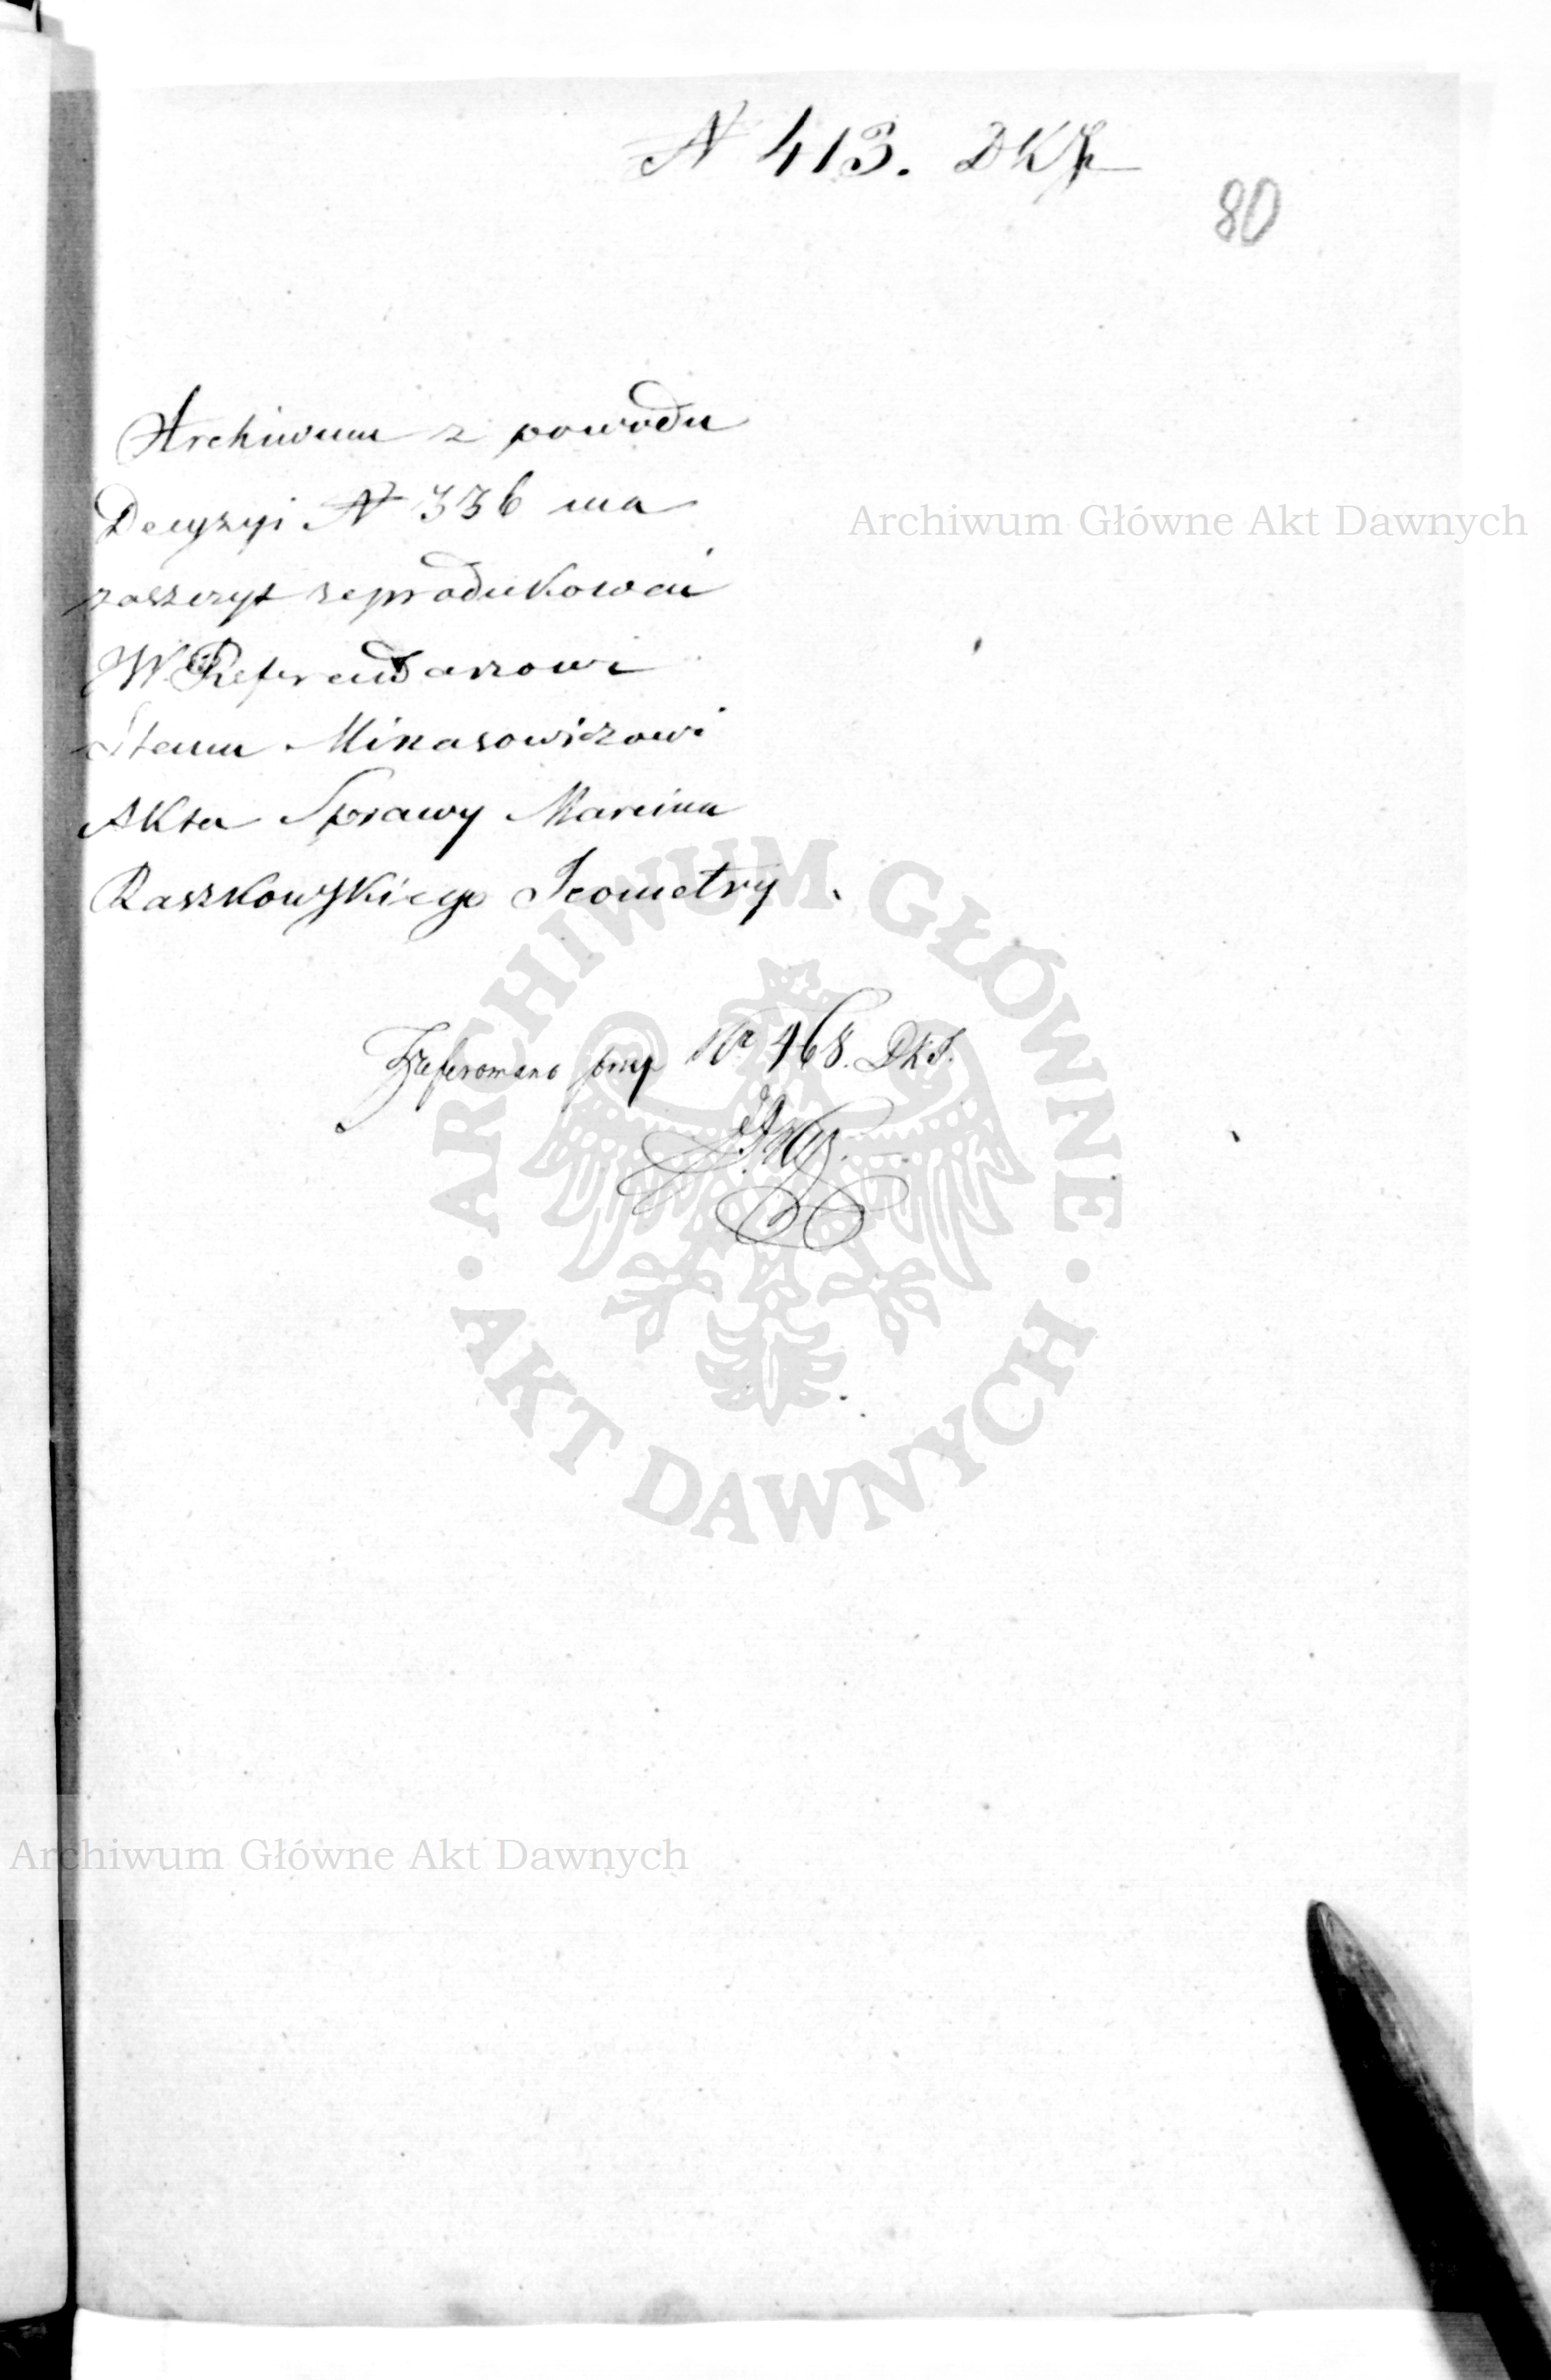 N 413. DKS
80
Archiwum z powodu
Decyzyi N 336 ma
zaszczyt reprodukować
W. Referendarzowi
Stanu Minasowiczowi
Akta Sprawy Marcina
Raszkowskiego Jeometry
Archiwum Główne Akt Dawnych
Zreferowano przy Nr 468. DKS.
ARCHIWUM GŁÓWNE
AKT DAWNYCH
Archiwum Główne Akt Dawnych